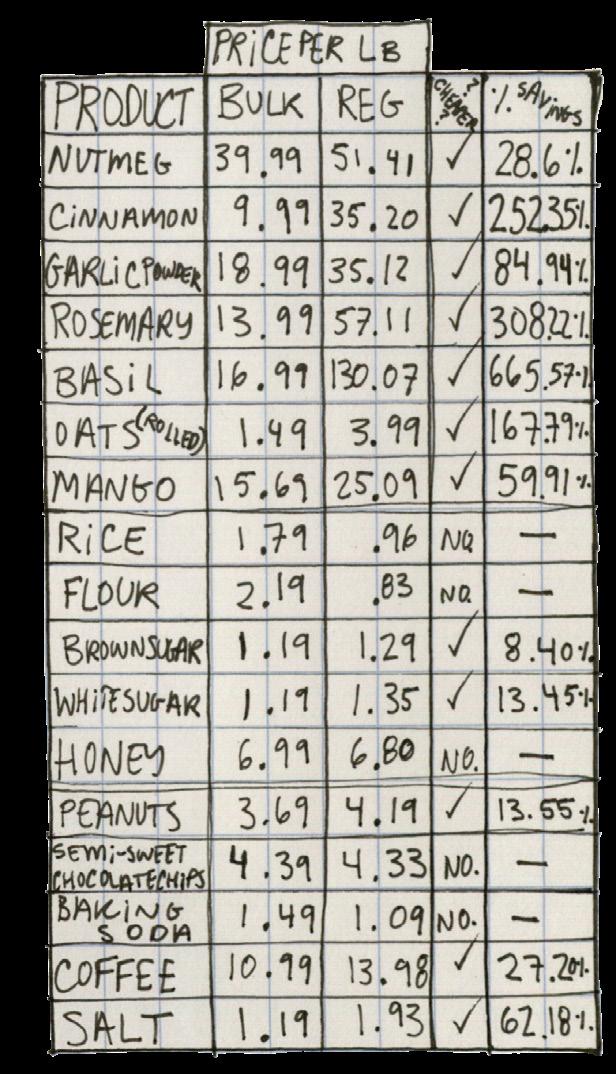 PRICE PER LB
PRODUCT BULK REG CHEAPER ? ? % SAVINGS
NUTMEG 39.99 51.41 ✓ 28.6%
CINNAMON 9.99 35.20 ✓ 252.35%
GARLIC POWDER 18.99 35.12 ✓ 84.94%
ROSEMARY 13.99 57.11 ✓ 308.22%
BASIL 16.99 130.07 ✓ 665.57%
OATS (ROLLED) 1.49 3.99 ✓ 167.79%
MANGO 15.69 25.09 ✓ 59.91%
RICE 1.79 .96 NO. —
FLOUR 2.19 .83 NO. —
BROWN SUGAR 1.19 1.29 ✓ 8.40%
WHITE SUGAR 1.19 1.35 ✓ 13.45%
HONEY 6.99 6.80 NO. —
PEANUTS 3.69 4.19 ✓ 13.55%
SEMI-SWEET
CHOCOLATE CHIPS 4.39 4.33 NO. —
BAKING
SODA 1.49 1.09 NO. —
COFFEE 10.99 13.98 ✓ 27.20%
SALT 1.19 1.93 ✓ 62.18%